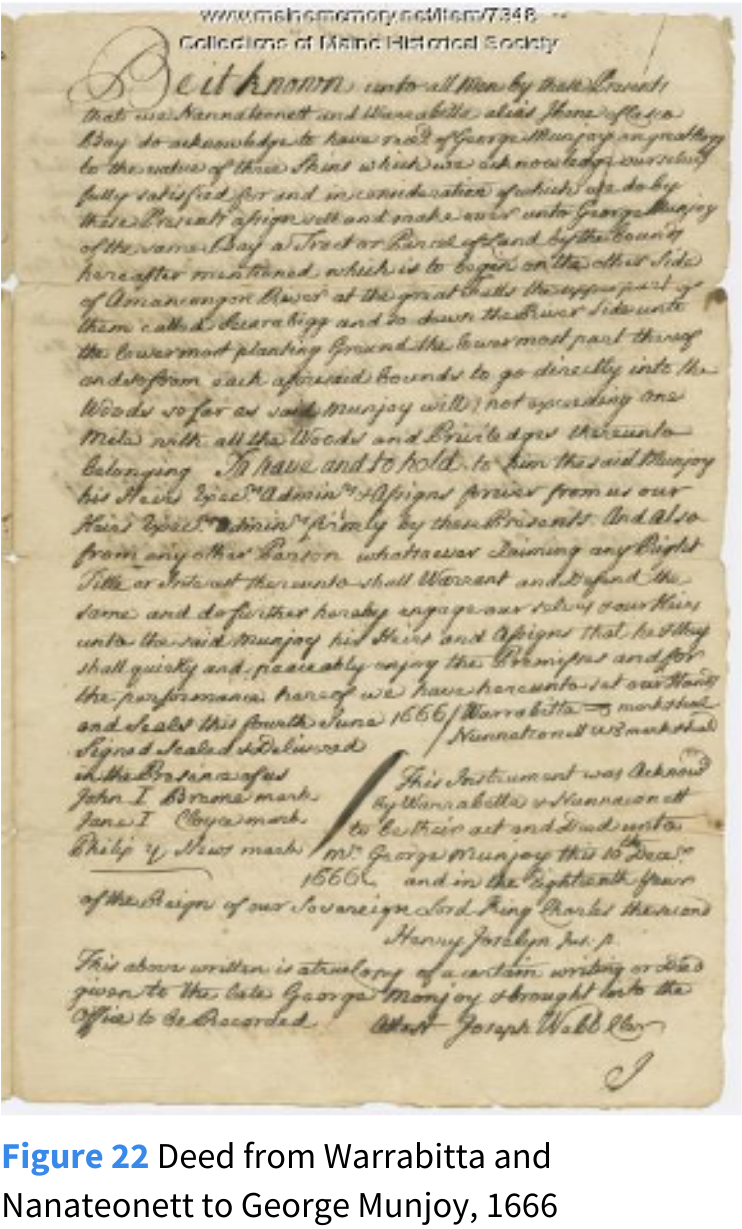 www.mainememory.net/item/7348
Collections of Maine Historical Society
Be it known unto all Men by these Presents
that we Nannateonett and Warrabitta alias Jhone of Casco
Bay do acknowledge to have recd. of George Munjoy
to the value of three Skins which we acknowledge ourselves
fully satisfied for and in consideration of which we do by
these Presents assign sell and make over unto George Munjoy
of the same Bay a Tract or Parcel of Land by the bounds
hereafter mentioned which is to begin on the other Side
of Amancongon River at the great Falls the upper part of
them called Sacarabigg and so down the River Side unto
the lowermost planting Ground the lowermost part thereof
and so from each aforesaid bounds to go directly into the
Woods so far as said Munjoy will not exceeding one
Mile with all the Woods and Priviledges thereunto
belonging To have and to hold to him the said Munjoy
his Heirs Execrs. Adminrs & Assigns forever from us our
Heirs Execrs. Adminrs firmly by these Presents. And Also
from any other Person whatsoever claiming any Right
Title or Interest thereunto shall Warrant and Defend the
same and do further hereby engage our selves & our Heirs
unto the said Munjoy his Heirs and Assigns that he & they
shall quietly and peaceably enjoy the Premisses and for
the performance hereof we have hereunto set our Hands
and Seals this fourth June 1666 / Warrabitta mark & seal
Signed Sealed & Delivered Nunnateonett mark & seal
in the Presence of us
John I Breme mark
Jane I Cloyce mark
Philip y News mark
This Instrument was Acknowd
by Warrabitta & Nunnaconett
to be their act and Deed unto
Mr. George Munjoy this 10th Decr.
1666 and in the Eighteenth Year
of the Reign of our Sovereign Lord King Charles the second
Henry Jocelyn Jus. p.
This above written is a true Copy of a certain writing or Deed
given to the late George Monjoy & brought into the
Office to be Recorded Attest Joseph Webb Cler
Figure 22 Deed from Warrabitta and
Nanateonett to George Munjoy, 1666